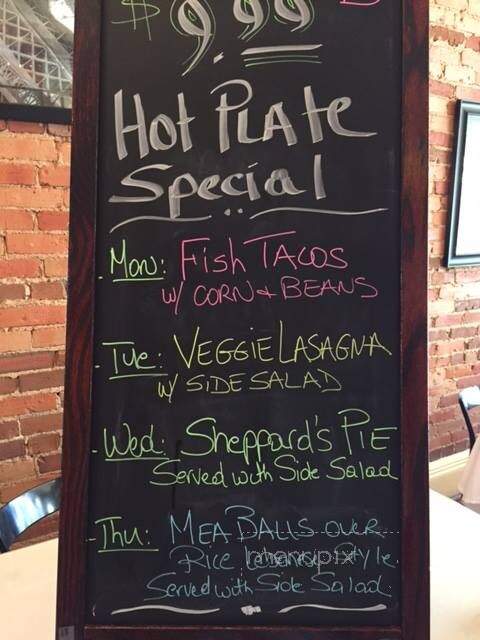 $9.99
Hot Plate
Special
Mon: Fish Tacos
w/ CORN & BEANS
Tue: VEGGIE LASAGNA
w/ SIDE SALAD
Wed: Sheppard's PIE
Served with Side Salad
Thu: MEABALLS OVER
Rice style
Served with Side Salad